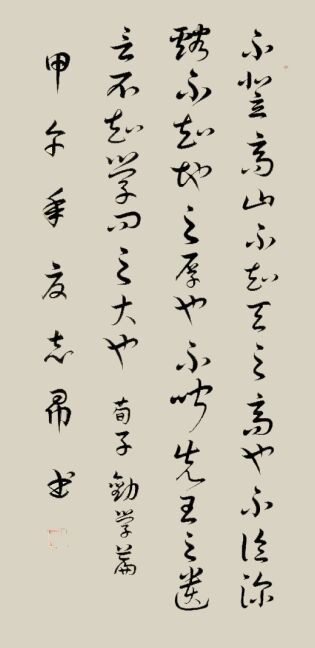 不登高山不知天之高也不临深
谿不知地之厚也不闻先王之遗
言不知学问之大也 荀子劝学篇
甲午年夏志书